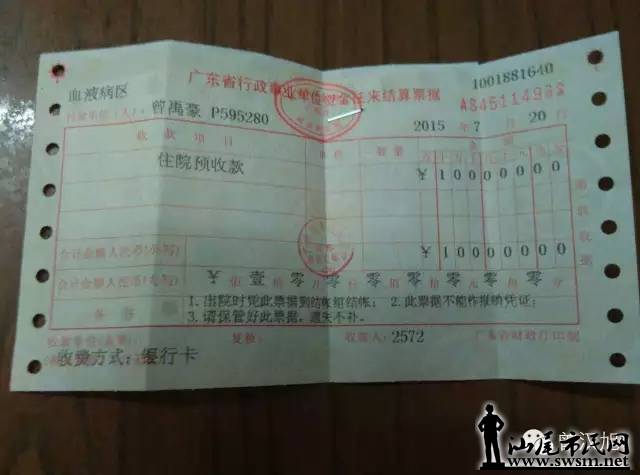 广东省行政事业单位资金往来结算票据
1001881640
血液病区
付款单位(人): 曾禹豪 P595280
2015 年 7 月 20 日
收款项目 单价 数量 金额
住院预收款
¥ 1 0 0 0 0 0 0 0
合计金额人民币(小写) ¥ 1 0 0 0 0 0 0 0
合计金额人民币(大写)
备注
1. 出院时凭此票据到结帐组结帐; 2. 此票据不能作报销凭证;
3. 请保管好此票据, 遗失不补.
复核: 收款人: 2572 广东省财政厅印制
收费方式: 银行卡
汕尾市民网
www.swsm.net